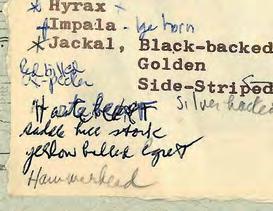 * Hyrax x
Impala - big horn
* Jackal, Black-backed
Golden
red billed
ox-pecker
Side-Striped
Silver backed
Hartebeest
saddle bill stork
yellow billed egret
Hammerhead